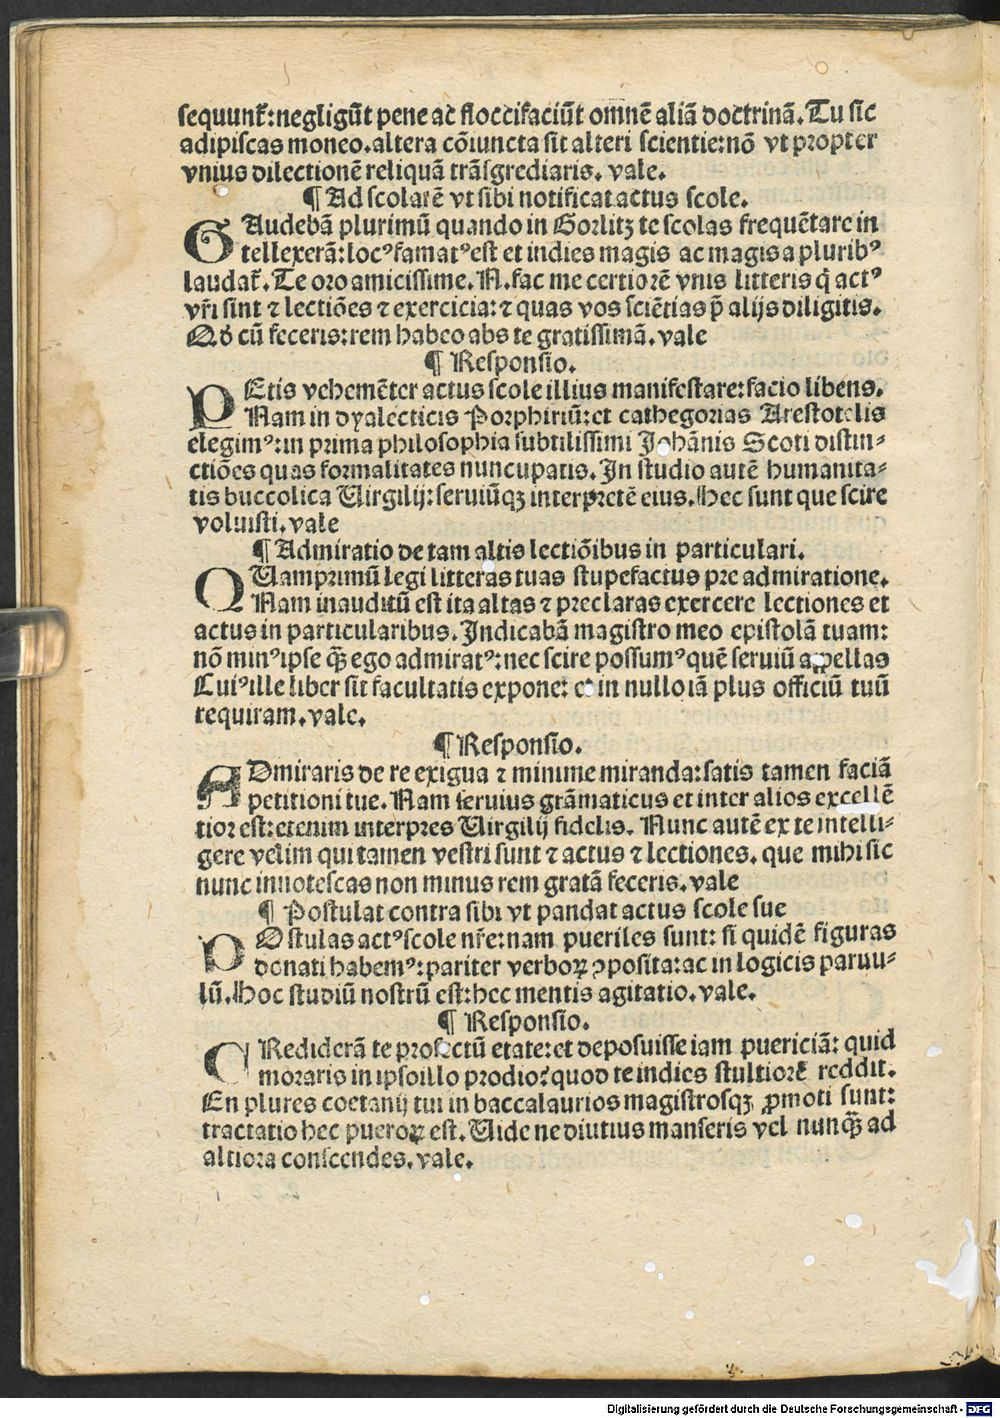 sequunt᷑: negligūt pene ac floccifaciūt omnē aliā doctrinā. Tu sic
adipiscas moneo. altera cōiuncta sit alteri scientie: nō vt propter
vnius dilectionē reliquā trāsgrediaris. vale.
¶ Ad scolarē vt sibi notificat actus scole.
GAudebā plurimū quando in Gorlitz te scolas frequētare in
tellexerā: locꝰ famatꝰ est et indies magis ac magis a pluribꝰ
laudat᷑. Te oro amicissime. N. fac me certiorē vnis litteris q̄ actꝰ
vr̄i sint ⁊ lectiōes ⁊ exercicia: ⁊ quas vos sciētias p̄ alijs diligitis.
Qḋ cū feceris: rem habeo abs te gratissimā. vale
¶ Responsio.
PEtis vehemēter actus scole illius manifestare: facio libens.
Nam in dyalecticis Porphiriū: et cathegorias Arestotelis
elegimꝰ: in prima philosophia subtilissimi Johānis Scoti distin⸗
ctiōes quas formalitates nuncupatis. In studio autē humanita⸗
tis buccolica Uirgilij: seruiūqꝫ interpretē eius. Hec sunt que scire
voluisti. vale
¶ Admiratio de tam altis lectiōibus in particulari.
QUamprimū legi litteras tuas stupefactus pre admiratione.
Nam inauditū est ita altas ⁊ preclaras exercere lectiones et
actus in particularibus. Indicabā magistro meo epistolā tuam:
nō minꝰ ipse qꝫ̄ ego admiratꝰ: nec scire possumꝰ quē seruiū appellas
Cuiꝰ ille liber sit facultatis expone: et in nullo iā plus officiū tuū
requiram. vale.
¶ Responsio.
ADmiraris de re exigua ⁊ minime miranda: satis tamen faciā
petitioni tue. Nam seruius grāmaticus et inter alios excellē
tior est: etenim interpres Uirgilij fidelis. Nunc autē ex te intelli⸗
gere velim qui tamen vestri sunt ⁊ actus ⁊ lectiones. que mihi sic
nunc innotescas non minus rem gratā feceris. vale
¶ Postulat contra sibi vt pandat actus scole sue
POstulas actꝰ scole nr̄e: nam pueriles sunt: si quidē figuras
donati habemꝰ: pariter verboꝝ ꝯposita: ac in logicis paruu⸗
lū. Hoc studiū nostrū est: hec mentis agitatio. vale.
¶ Responsio.
CRediderā te profectū etate: et deposuisse iam puericiā: quid
moraris in ipso illo prodio? quod te indies stultiorē reddit.
En plures coetanij tui in baccalaurios magistrosqꝫ ꝓmoti sunt:
tractatio hec pueroꝝ est. Uide ne diutius manseris vel nunqꝫ̄ ad
altiora conscendes. vale.
Digitalisierung gefördert durch die Deutsche Forschungsgemeinschaft - DFG